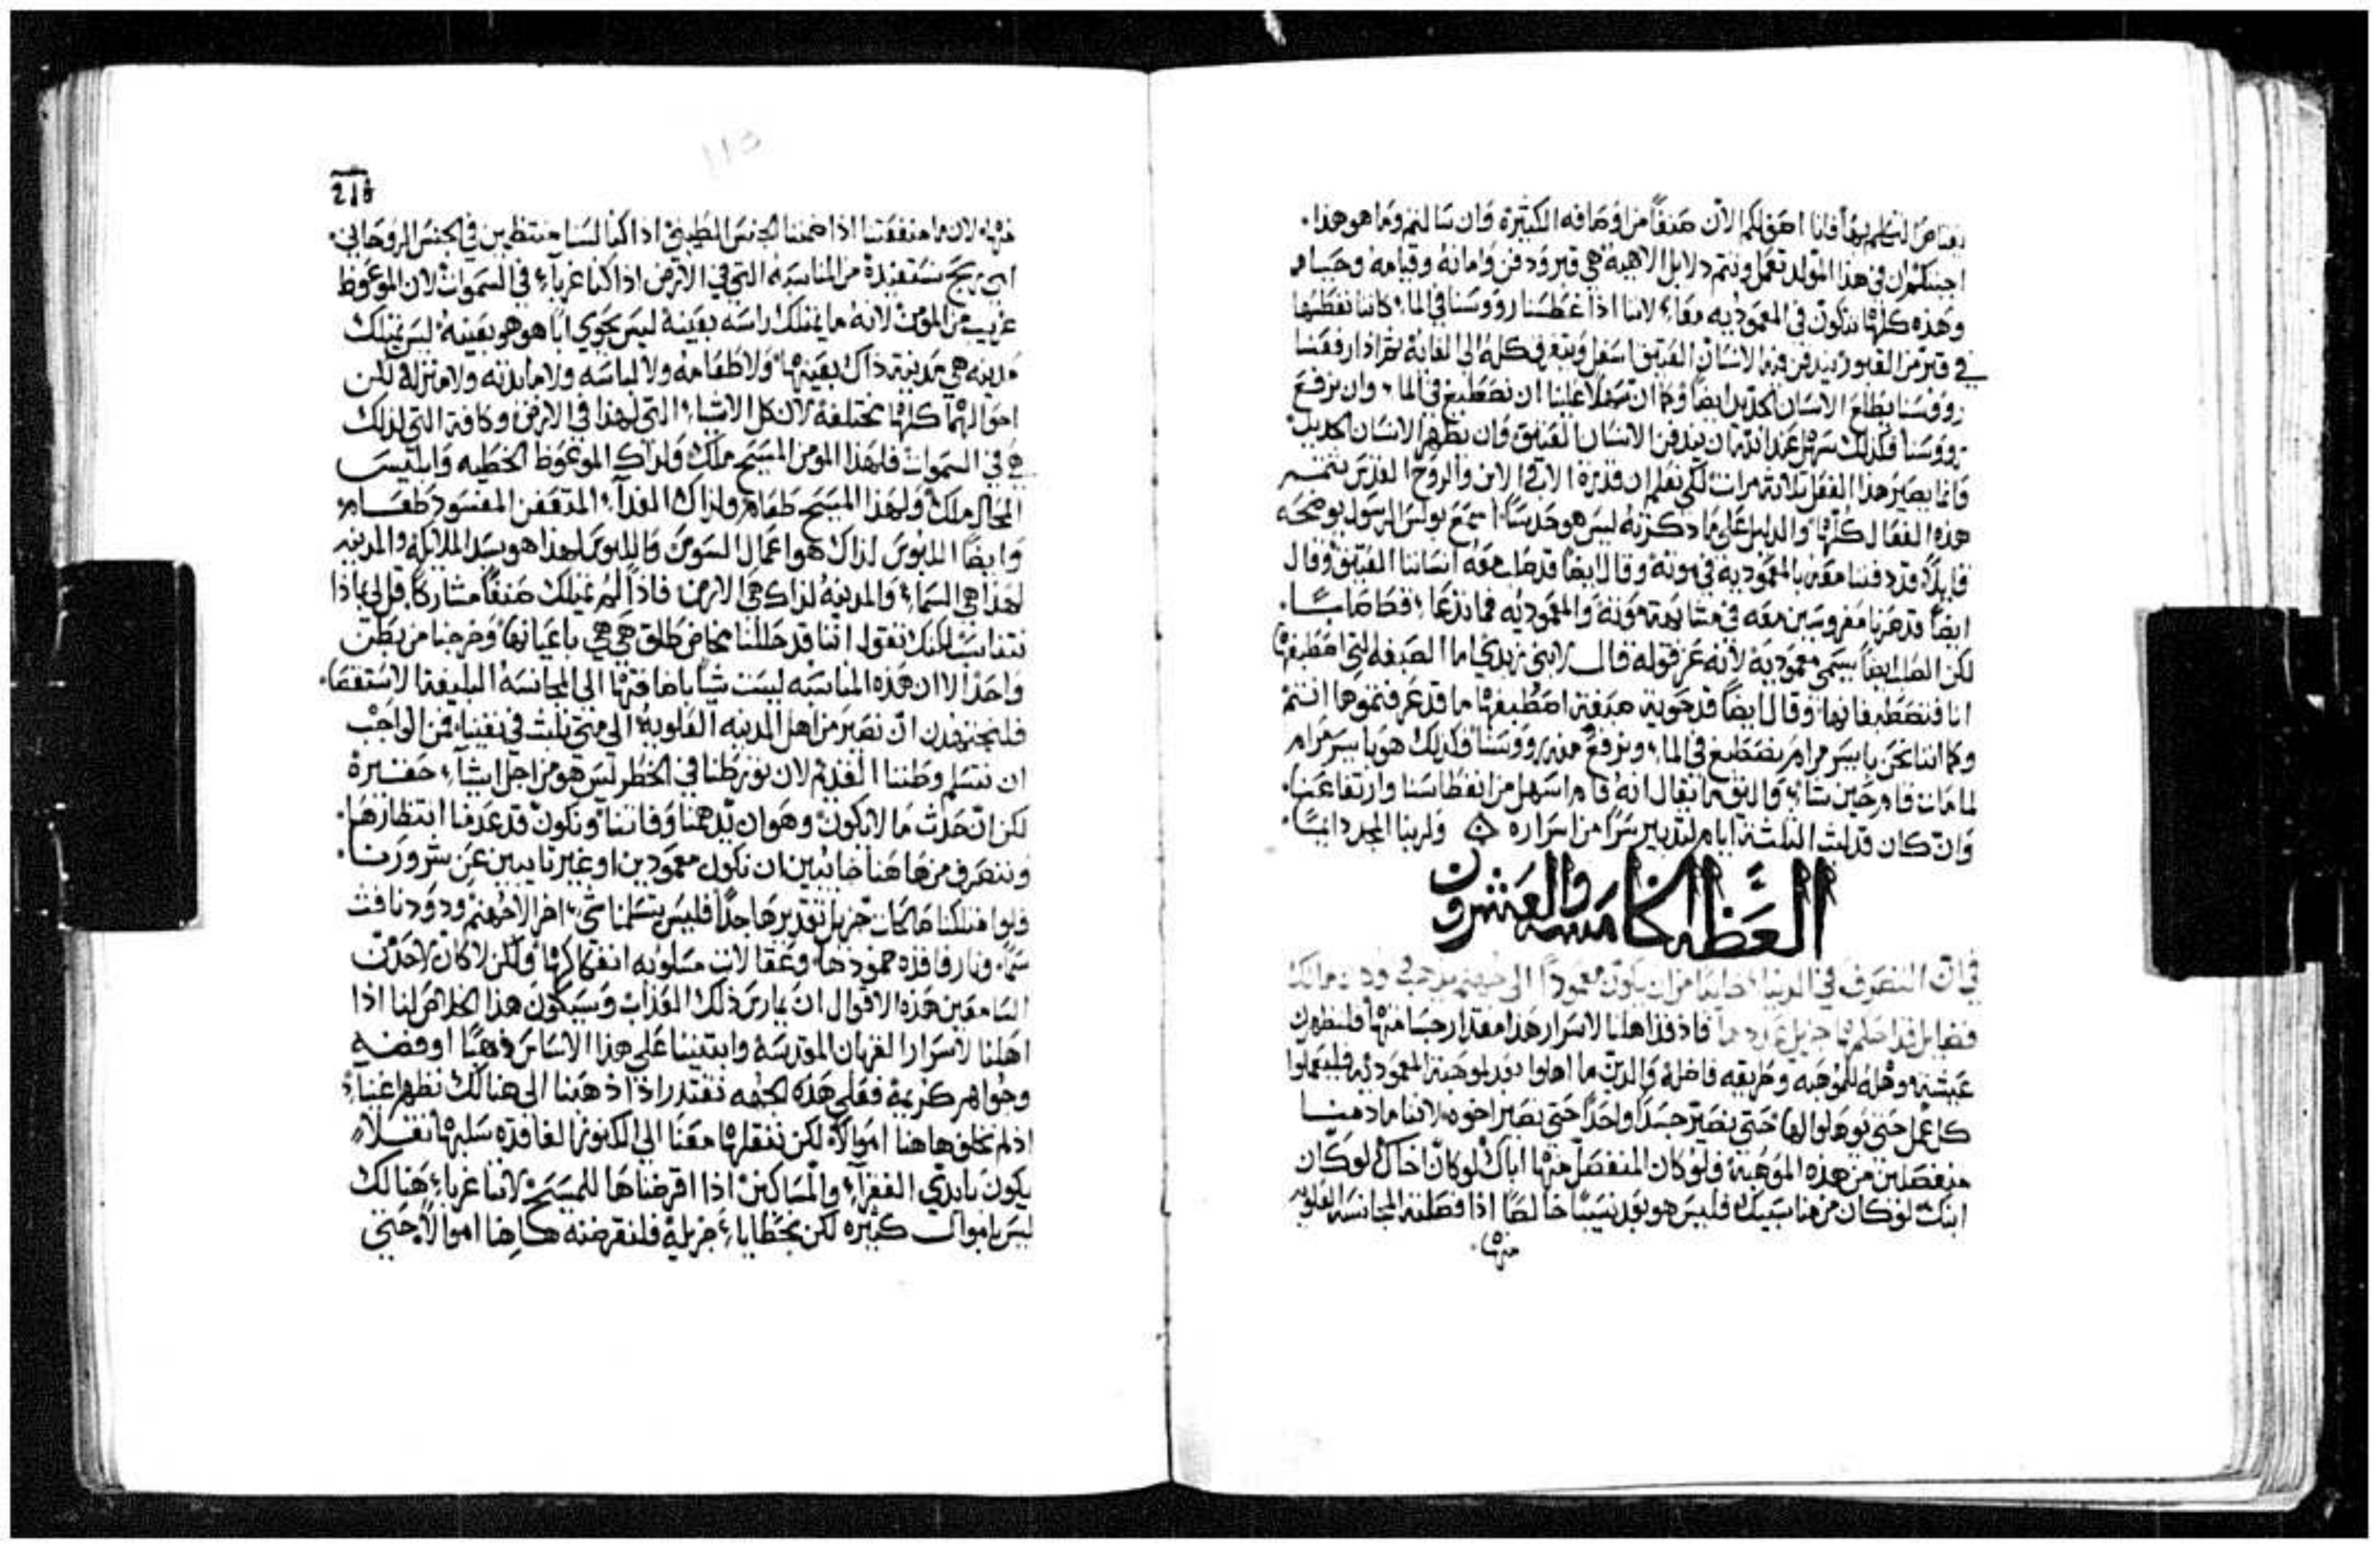 اجبتكم ان في هذا المولد تعمل وتتم دلايل الاهية هي قبر ودفن وامانة وقيامة وحياه
وهذه كلها تتكون في المعموديه معًا لاننا اذا غطسنا رووسنا في الماء كاننا نغطسها
في قبر من القبور يندفن فيه الانسان العتيق اسفل ويتغرق كله الى الغاية ثم اذا رفعنا
رووسنا يطلع الانسان الجديد ايضًا وكما ان سهلًا علينا ان نصطبغ في الماء وان نرفع
رووسنا فكذلك سهل عند الله ان يندفن الانسان العتيق وان يظهر الانسان الجديد
وانما يصير هذا الفعل ثلاثة مرات لكي نعلم ان قدرة الاب والابن والروح القدس تتمم
هذه الفعال كلها والدليل على ما ذكرته ليس هو حدسًا اسمع بولس الرسول يوضحه
قايلًا قد دفنا معه بالمعمودية في موته وقال ايضًا قد صلب معه انساننا العتيق وقال
ايضًا قد صرنا مغروسين معه في مشابهة موته والمعموديه فما تدعا فقط صليبًا
لكن الصلب ايضًا يسمى معمودية لانه عز قوله قال لابني زبدي اما الصبغه التي اصطبغها
انا فتصطبغانها وقال ايضًا قد حويت صبغة اصطبغها ما قد عرفتموها انتم
وكما اننا نحن بايسر مرام نصطبغ في الماء ونرفع منه رووسنا فكذلك هو بايسر مرام
لما مات قام حين شاء واليق ما يقال انه قام اسهل من انغطاسنا وارتفاعنا
وان كان قد لبث الثلثة ايام لتدبير سرًا من اسراره ولربنا المجد دايمًا
العظه الخامسه والعشرون
في ان التصرف في الدنيا خايبًا من ان يكون معمودًا الى جهنم
فضايل
عيشته وهله للموهبه وطريقه فاضلة والدين ما اهلوا بعد لموهبة المعموديه فليعملوا
كل عمل حتى يوهلوا لها حتى نصير جسدًا واحدًا حتى نصير اخوه لاننا ما دمنا
منفصلين من هذه الموهبة فلو كان المنفصل منها اباك لو كان اخاك لو كان
ابنك لو كان من مناسبيك فليس هو بعد نسيبًا خالصًا اذا فصلته المجانسة العلويه
منها
218
منها لان ما منفعتنا اذا ضمنا الجنس الطيني اذا كنا لسنا منتظمين في الجنس الروحاني
اي ربح نستفيده من المناسبه التي في الارض اذا كنا غرباء في السموات لان الموعوظ
غريب من المومن لانه ما يمتلك راسه بعينه ليس يحوي ابًا هو هو بعينه ليس يمتلك
مدينه هي مدينة ذاك بعينها ولا طعامه ولا لباسه ولا مايدته ولا منزله لكن
احوالهما كلها مختلفة لان كل الاشياء التي لهذا في الارض وكافة التي لذلك
هي في السموات فلهذا المومن المسيح ملك ولذاك الموعوظ الخطيه وابليس
المحال ملك ولهذا المسيح طعام ولذاك الغداء المتعفن المفسود طعام
لهذا هي السماء والمدينة لذاك هي الارض فاذا لم نمتلك صنفًا مشاركًا قل لي بماذا
نتناسب لكنك تقول اننا قد حللنا مخاض طلق هي هي باعيانها وخرجنا من بطن
واحد الا ان هذه المناسبه ليست شيًا باضافتها الى المجانسه البليغة الاستقصا
فلنجتهدن ان نصير من اهل المدينه العلوية الى متى نلبث في نفينا فمن الواجب
ان نتسلم وطننا القديم لان تورطنا في الخطر ليس هو من اجل اشياء حقيرة
لكن ان حدث ما لا يكون وهو ان تدهمنا وفاتنا ونكون قد عدمنا انتظارها
وننصرف من هاهنا خايبين ان نكون معمودين او غير تايبين عن شرورنا
ولو امتلكنا صالحات جزيل تقديرها جدًا فليس يتسلمنا شي اخر الا جهنم ودود نافث
سمًا ونار فاقده خمودها وعقالات مسلوبه انفكاكها ولكن لا كان لاحد من
السامعين هذه الاقوال ان يمارس ذلك العذاب وسيكون هذا الخلاص لنا اذا
اهلنا لاسرار القربان المقدسة وابتنينا على هذا الاساس ذهبًا او فضه
وجواهر كريمة فعلى هذه الجهه نقتدر اذا ذهبنا الى هنالك نظهر اغنياء
اذ لم نخلف هاهنا اموالًا لكن ننقلها معنا الى الكنوز الفاقده سلبها
يكون بايدي الفقراء والمساكين اذا اقرضناها للمسيح لاننا غرباء هنالك
ليس باموال كثيره لكن بخطايا جزيلة فلنقرضنه هاهنا اموالًا حتى